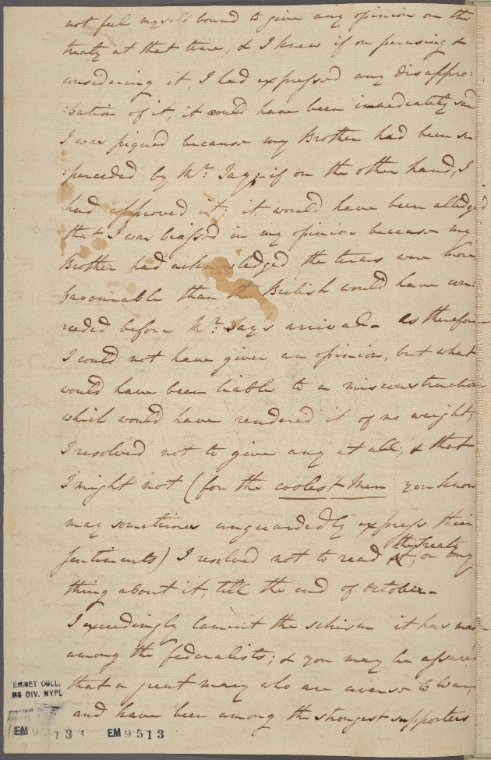 not feel myself bound to give any opinion on the
treaty at that time, & I knew if on perusing &
considering it, I had expressed any disappro-
:bation of it, it would have been immediately said
I was piqued because my Brother had been su
:perceded by Mr. Jay; if on the other hand, I
had approved it; it would have been alledged
that I was biassed in my opinion because my
Brother had acknowledged the terms were more
favourable than the British would have con:
:ceded before Mr. Jay's arrival - as therefore
I could not have given an opinion, but what
would have been liable to a misconstruction
which would have rendered it of no weight,
I resolved not to give any at all, & that
I might not (for the coolest Men you know
may sometimes unguardedly express their
sentiments) I resolved not to read the treaty, or any
thing about it, till the end of October -
I exceedingly lament the schism it has made
among the federalists; & you may be assured
that a great many who are averse to War,
and have been among the strongest supporters
EMMET COLL.
MS DIV. NYPL
EM 9513